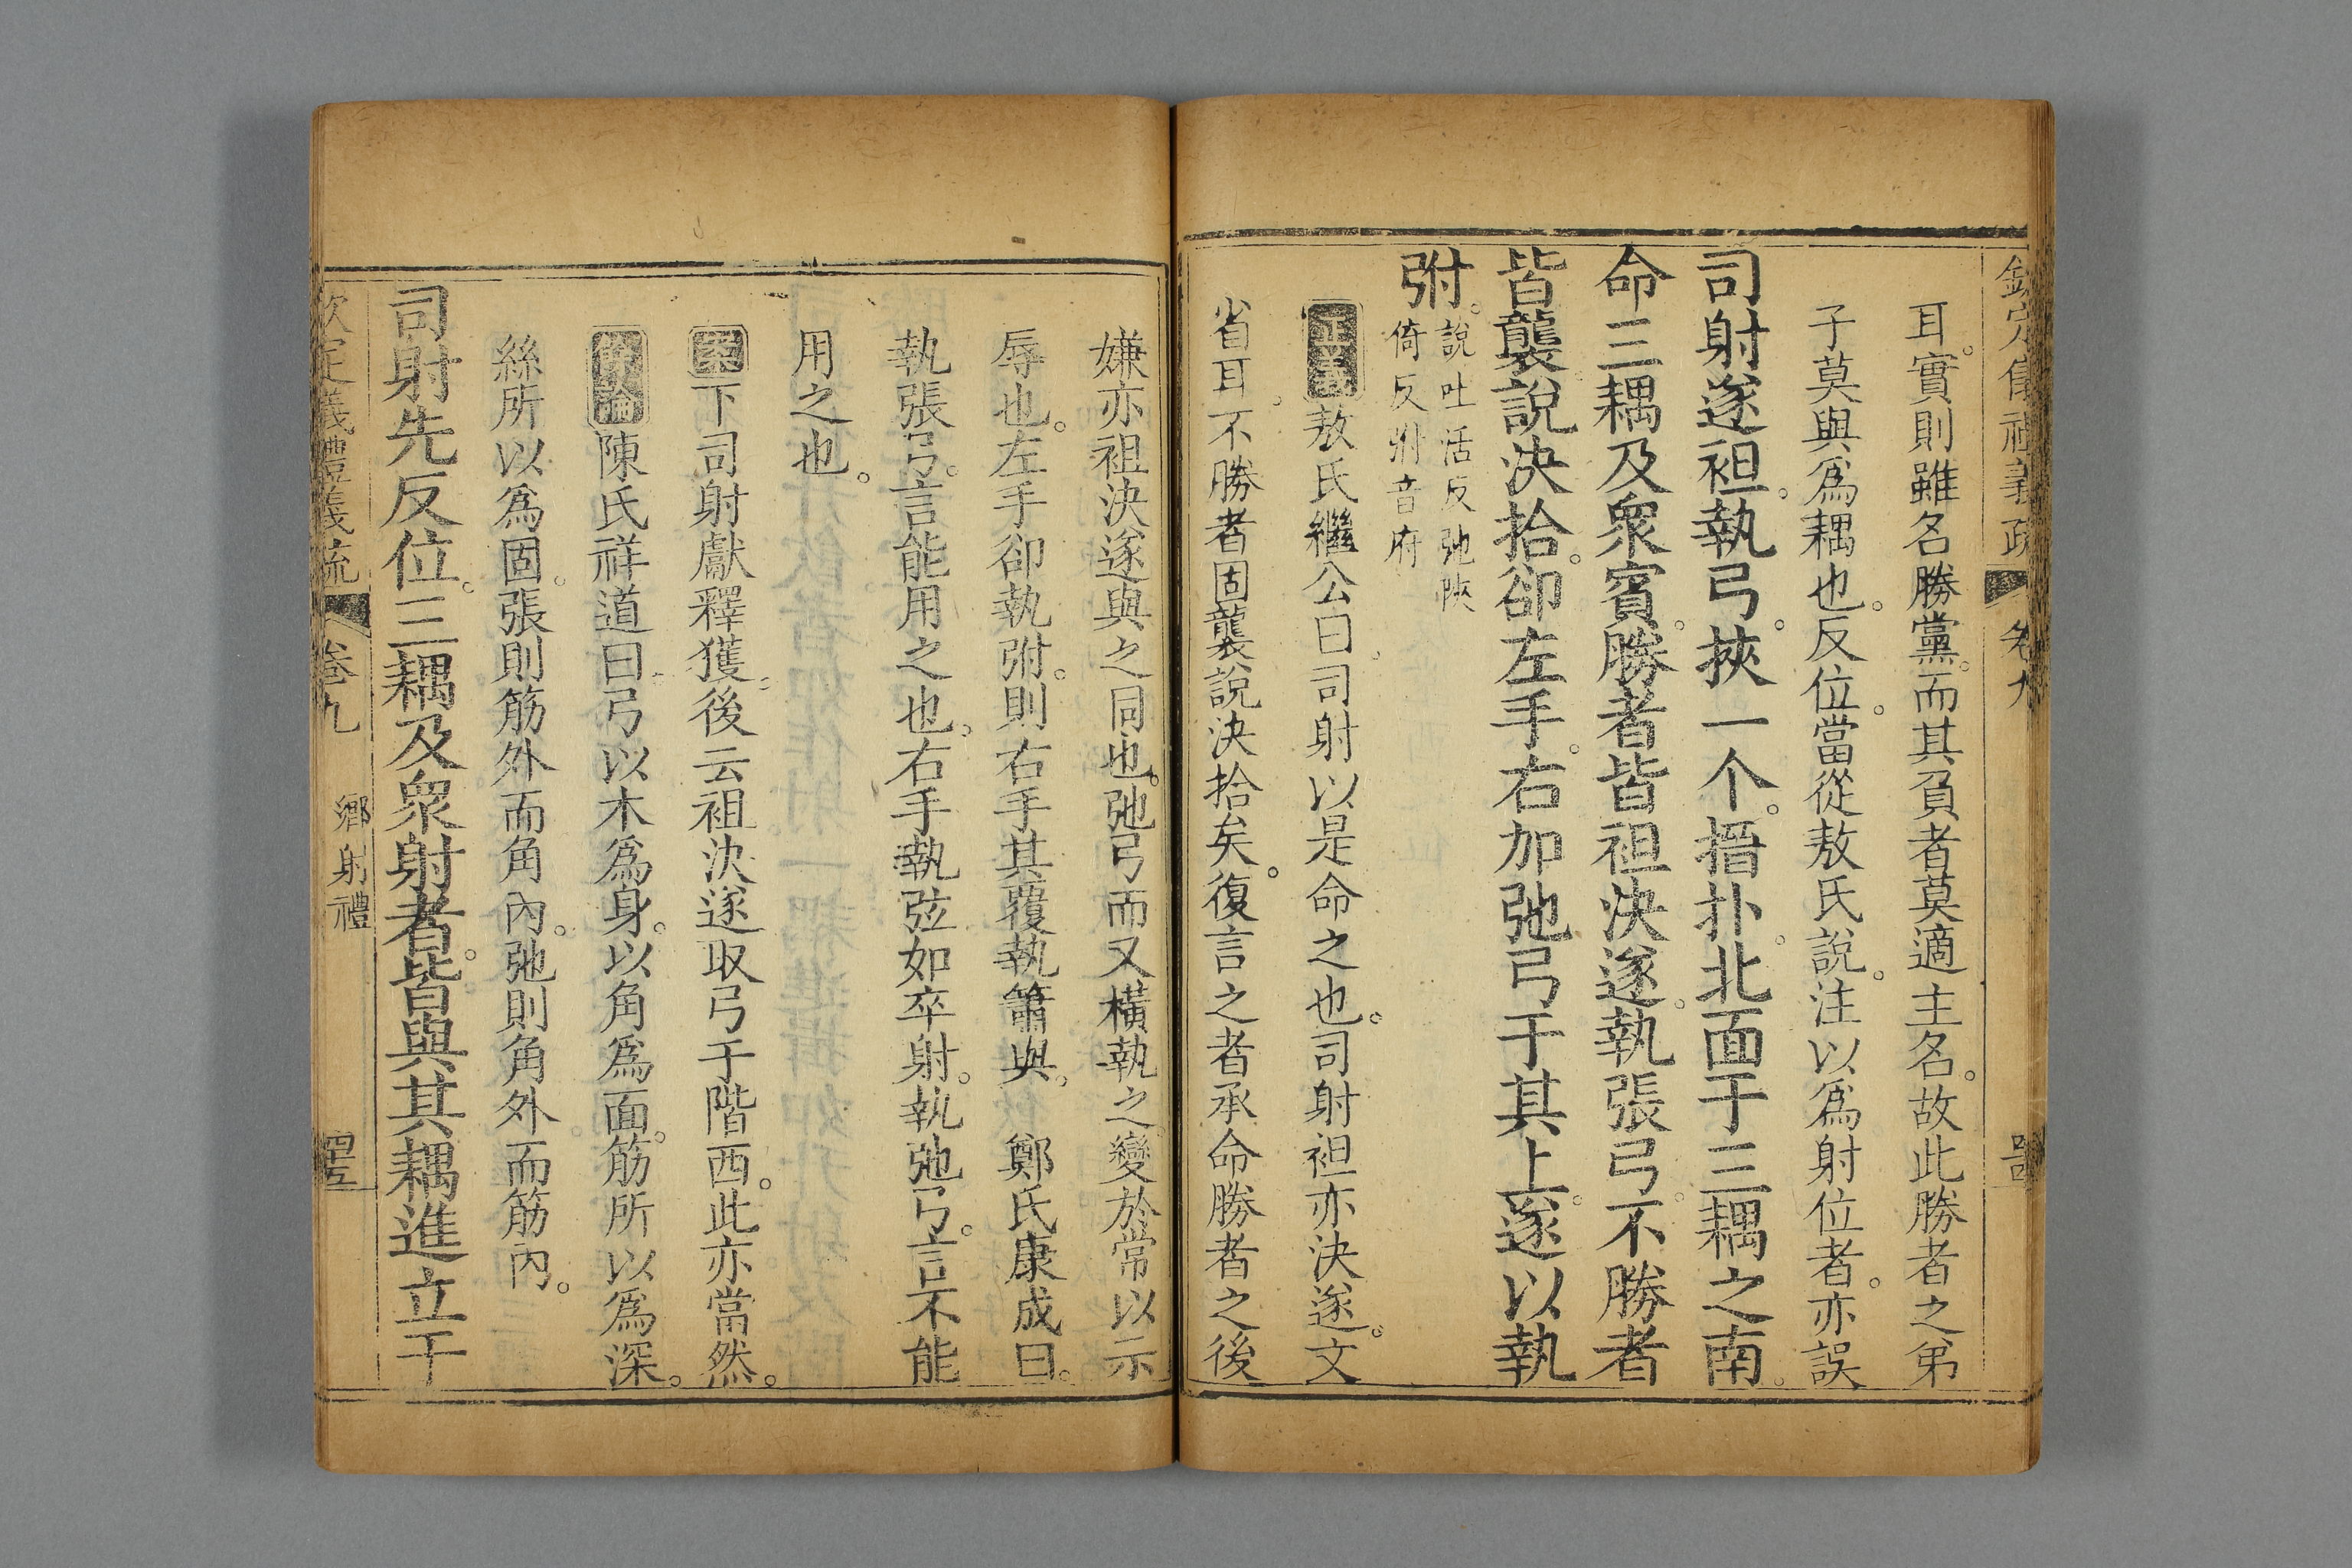 欽定儀禮義疏 卷九
耳。實則雖名勝黨。而其負者莫適主名。故此勝者之弟
子莫與爲耦也。反位。當從敖氏說。注以爲射位者。亦誤
司射遂袒。執弓。挾一个。搢扑。北面于三耦之南。
命三耦及衆賓。勝者皆袒決遂。執張弓。不勝者
皆襲。說決拾。卻左手。右加弛弓于其上。遂以執
弣。
說吐活反弛陝
倚反弣音府
正義敖氏繼公曰。司射以是命之也。司射袒亦決遂。文
省耳。不勝者固襲說決拾矣。復言之者承命勝者之後
嫌亦袒決遂與之同也。弛弓而又橫執之。變於常以示
辱也。左手卻執弣。則右手其覆執簫與。鄭氏康成曰。
執張弓。言能用之也。右手執弦如卒射。執弛弓。言不能
用之也。
案下司射獻釋獲後云袒決遂取弓于階西。此亦當然。
餘論陳氏祥道曰。弓以木爲身。以角爲面。筋所以爲深。
絲所以爲固。張則筋外而角內。弛則角外而筋內。
司射先反位。三耦及衆射者。皆與其耦進立于
欽定儀禮義疏 卷九 鄉射禮